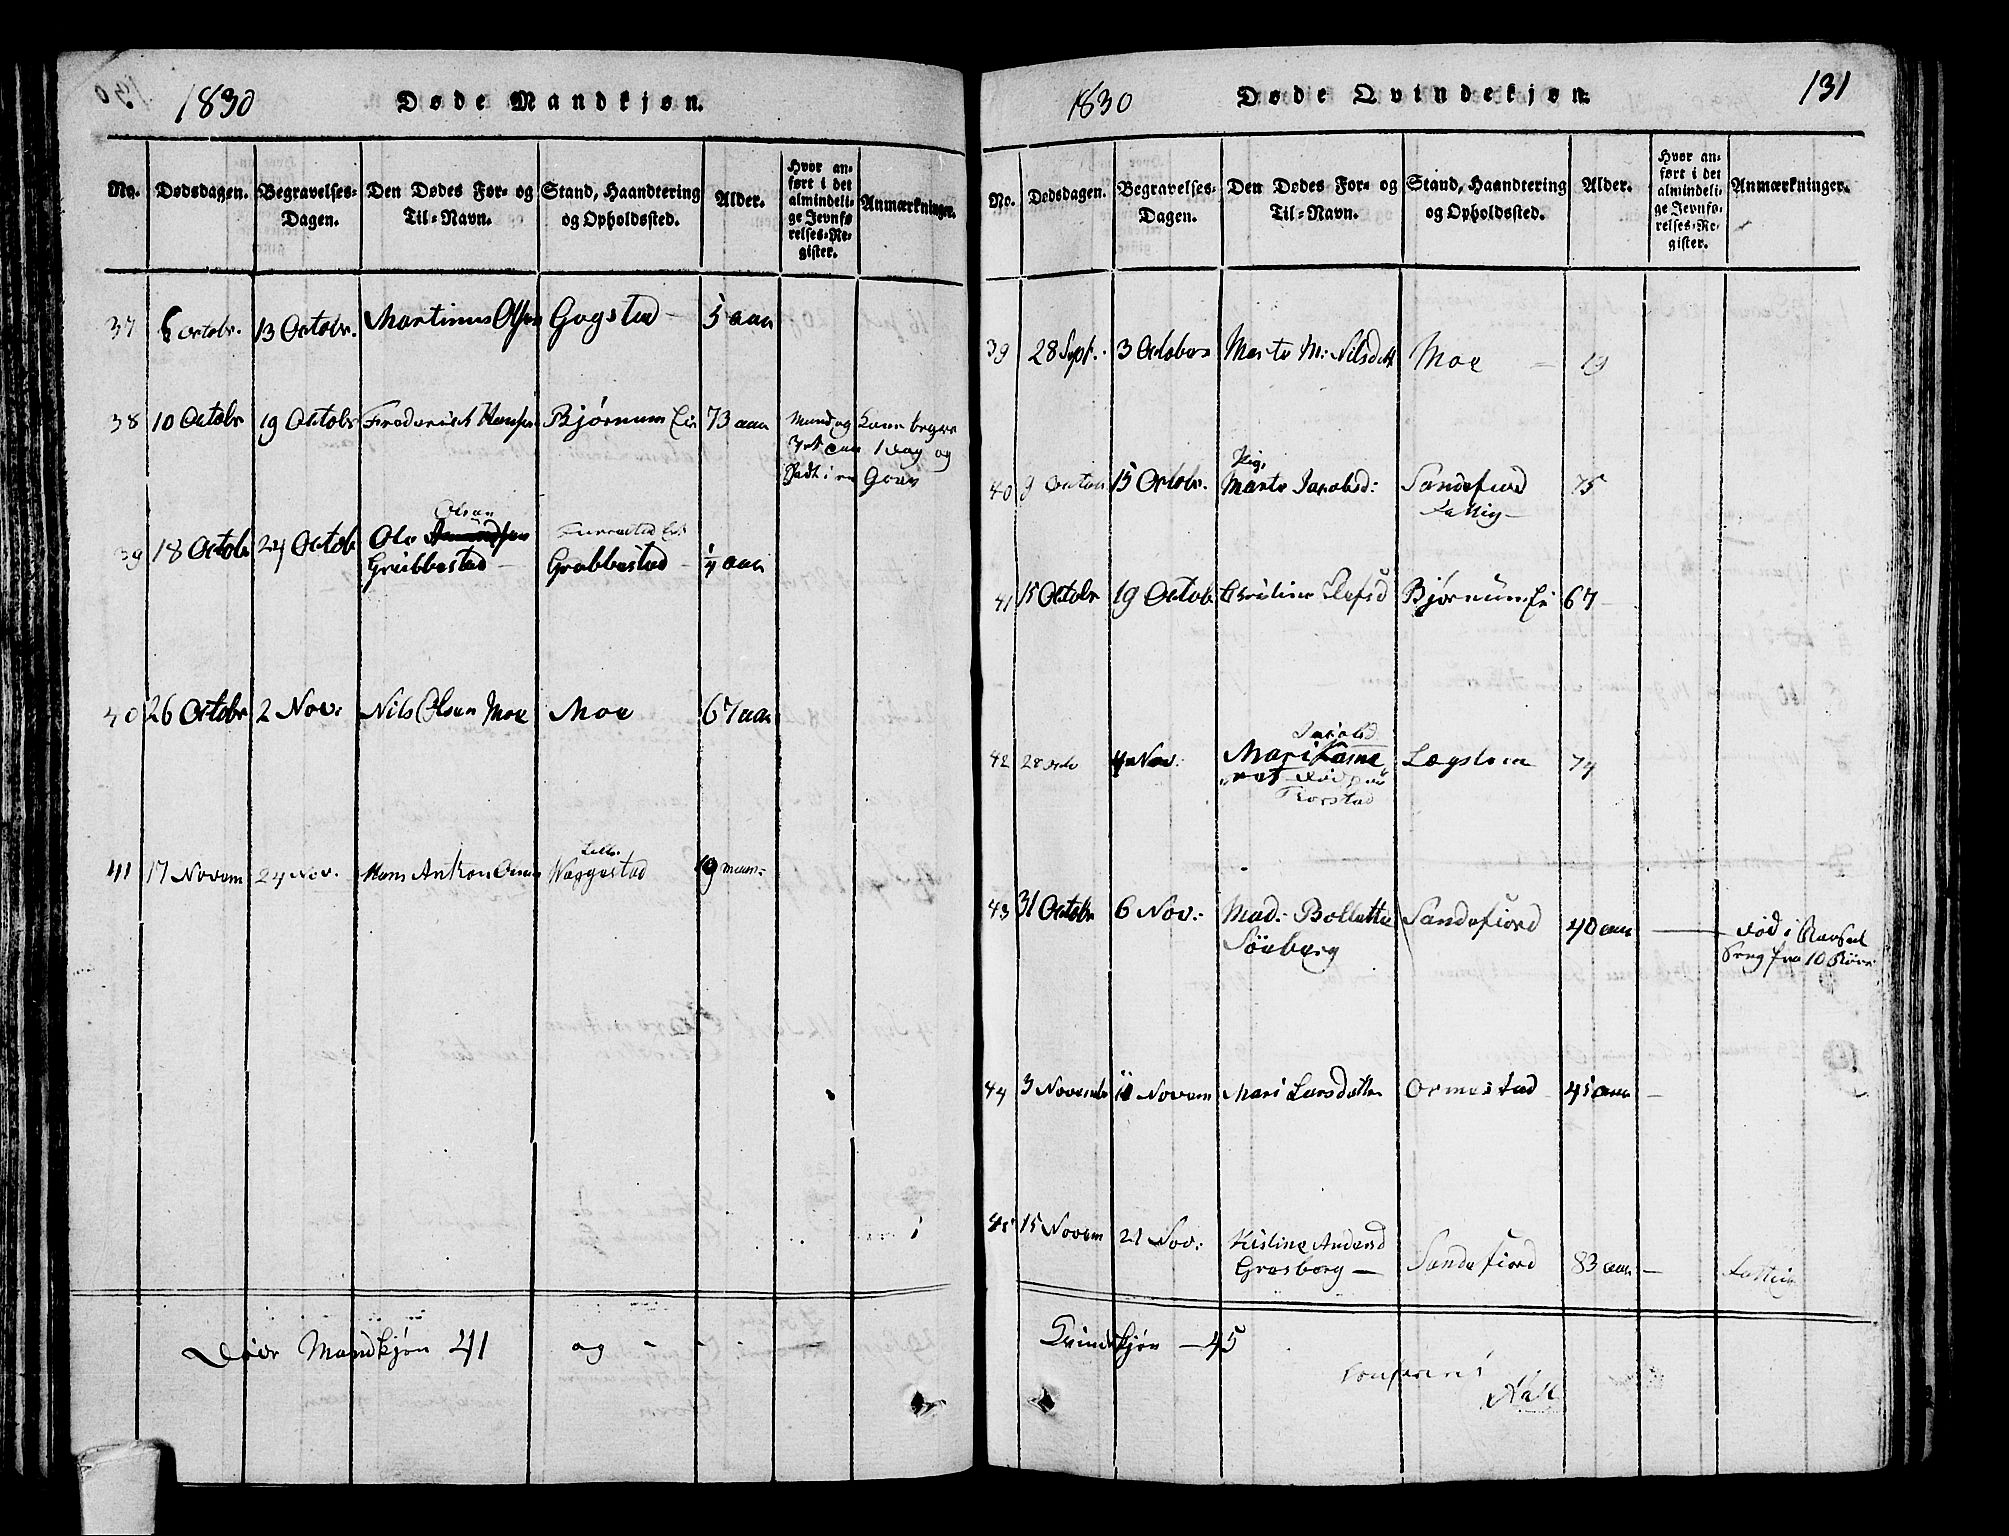 1830 Døde Mandkjøn.
No. Dødsdagen. Begravelses-Dagen. Den Dødes For- og Til-Navn. Stand, Haandtering og Opholdssted. Alder. Hvor anført i det almindelige Jevnførelses-Register. Anmærkninger.
37 6 Octobr. 13 Octobr. Martinus Olsen Gogstad 5 aar
38 10 Octobr 19 Octobr Frederich Hansen Bjørnum Ei 73 aar Mand og Kone begra
1 Dag og
i en Grav
Olsen
39 18 Octob 24 Octob Ole
Grabbestad Grabbestad ¼ aar
40 26 Octobr 2 Nov: Nils Olsen Moe Moe 67 aar
Lille
41 17 Novem 24 Nov. Hans Anton Olsen Vaggestad 19 maan:
Døde Mandkjøn 41 og - -
1830 Døde Qvindekjøn. 131
No. Dødsdagen. Begravelses-Dagen. Den Dødes For- og Til-Navn. Stand, Haandtering og Opholdssted. Alder. Hvor anført i det almindelige Jevnførelses-Register. Anmærkninger.
39 28 Sept. 3 Octobers Marte M: Nilsdatt Moe 19
Pig.
40 9 Octob 15 Octobr. Marte Jacobsd: Sandefiord 75
Fattig
41 15 Octobr 19 Octob Christine Olefsd Bjørnum Ei 67
Jacobsd
42 28 Octo 4 Nov: Mari Lægsleem 74
Thorstad
43 31 Octobr 6 Nov: Mad: Bollette Sandefiord 40 aar død i Barsel
Søeberg Seng fra 10 Børn
44 3 Novembr 11 Novem Mari Larsdatter Ormestad 45 aar
45 15 Novem 21 Nov: Kistine Andersd
Grasborg Sandefiord 83 aar Fattig
Qvindekjøn 45